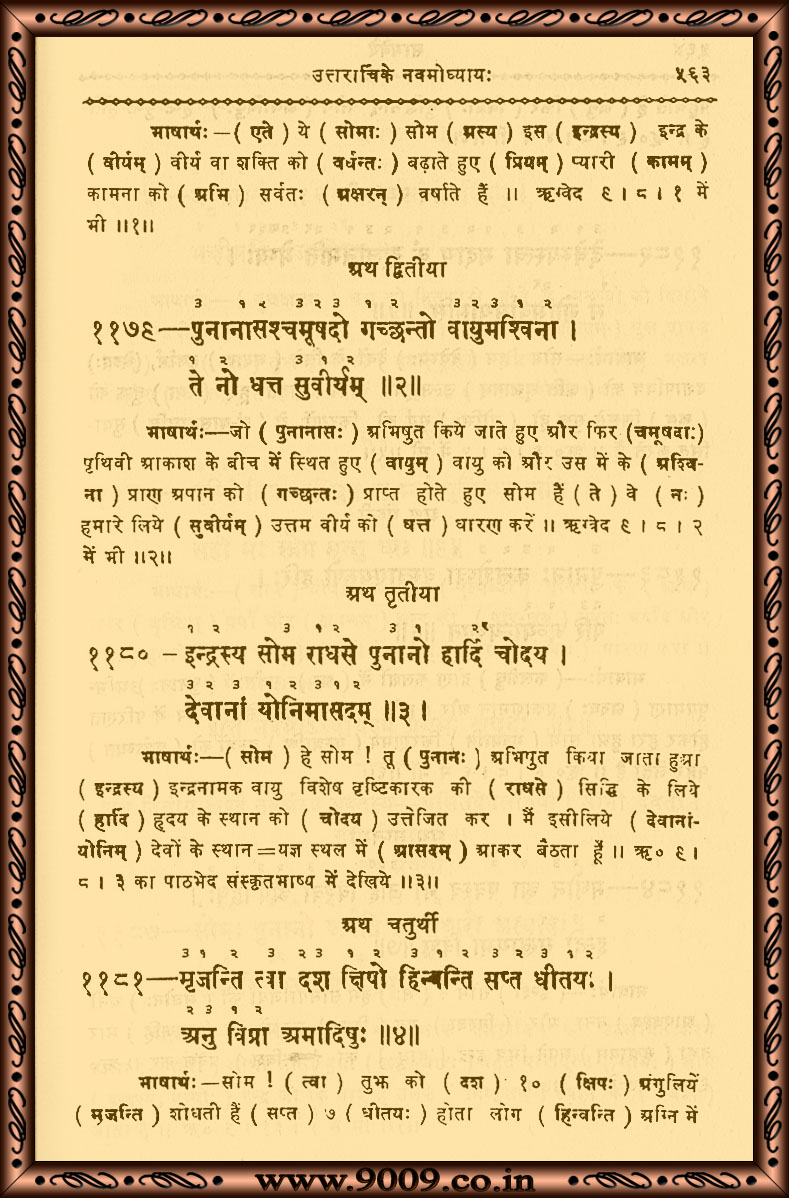 उत्तरार्चिके नवमोध्यायः ५६३
भाषार्थः—( एते ) ये ( सोमाः ) सोम ( अस्य ) इस ( इन्द्रस्य ) इन्द्र के
( वीर्यम् ) वीर्य वा शक्ति को ( वर्धन्तः ) बढ़ाते हुए ( प्रियम् ) प्यारी ( कामम् )
कामना को ( अभि ) सर्वतः ( अक्षरन् ) वर्षाते हैं ॥ ऋग्वेद ९ । ८ । १ में
भी ॥१॥
अथ द्वितीया
३ १ २ ३ २ ३ १ २ ३ २ ३ १ २
११७९—पुनानासश्चमूषदो गच्छन्तो वायुमश्विना ।
१ २ ३ १ २
ते नो धत्त सुवीर्यम् ॥२॥
भाषार्थः—जो ( पुनानासः ) अभिषुत किये जाते हुए और फिर (चमूषदः)
पृथिवी आकाश के बीच में स्थित हुए ( वायुम् ) वायु को और उस में के ( अश्वि-
ना ) प्राण अपान को ( गच्छन्तः ) प्राप्त होते हुए सोम हैं ( ते ) वे ( नः )
हमारे लिये ( सुवीर्यम् ) उत्तम वीर्य को ( धत्त ) धारण करें ॥ ऋग्वेद ९ । ८ । २
में भी ॥२॥
अथ तृतीया
१ २ ३ १ २ ३ १ २र
११८० – इन्द्रस्य सोम राधसे पुनानो हार्दि चोदय ।
३ २ ३ १ २ ३ १ २
देवानां योनिमासदम् ॥३ ।
भाषार्थः—( सोम ) हे सोम ! तू ( पुनानः ) अभिषुत किया जाता हुआ
( इन्द्रस्य ) इन्द्रनामक वायु विशेष वृष्टिकारक की ( राधसे ) सिद्धि के लिये
( हार्दि ) हृदय के स्थान को ( चोदय ) उत्तेजित कर । मैं इसीलिये ( देवानां-
योनिम् ) देवों के स्थान=यज्ञ स्थल में ( आसदम् ) आकर बैठता हूँ ॥ ऋ० ९ ।
८ । ३ का पाठभेद संस्कृतभाष्य में देखिये ॥३॥
अथ चतुर्थी
३ १ २ ३ २ ३ १ २ ३ १ २ ३ २ ३ १ २
११८१—मृजन्ति त्वा दश क्षिपो हिन्वन्ति सप्त धीतयः ।
२ ३ १ २
अनु विप्रा अमादिषुः ॥४॥
भाषार्थः—सोम ! ( त्वा ) तुझ को ( दश ) १० ( क्षिपः ) अंगुलियें
( मृजन्ति ) शोधती हैं ( सप्त ) ७ ( धीतयः ) होता लोग ( हिन्वन्ति ) अग्नि में
www.9009.co.in